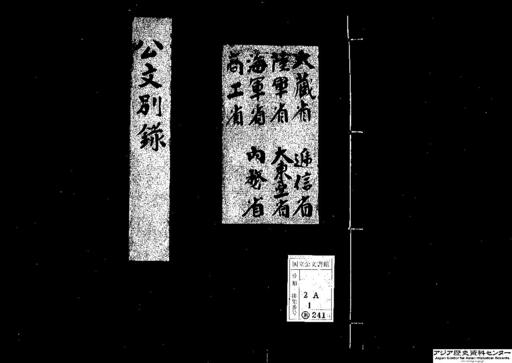 大蔵省 逓信省
陸軍省 大東亜省
海軍省 内務省
商工省
公文別録
国立公文書館
2 A
1
別 241
アジア歴史資料センター
Japan Center for Asian Historical Records